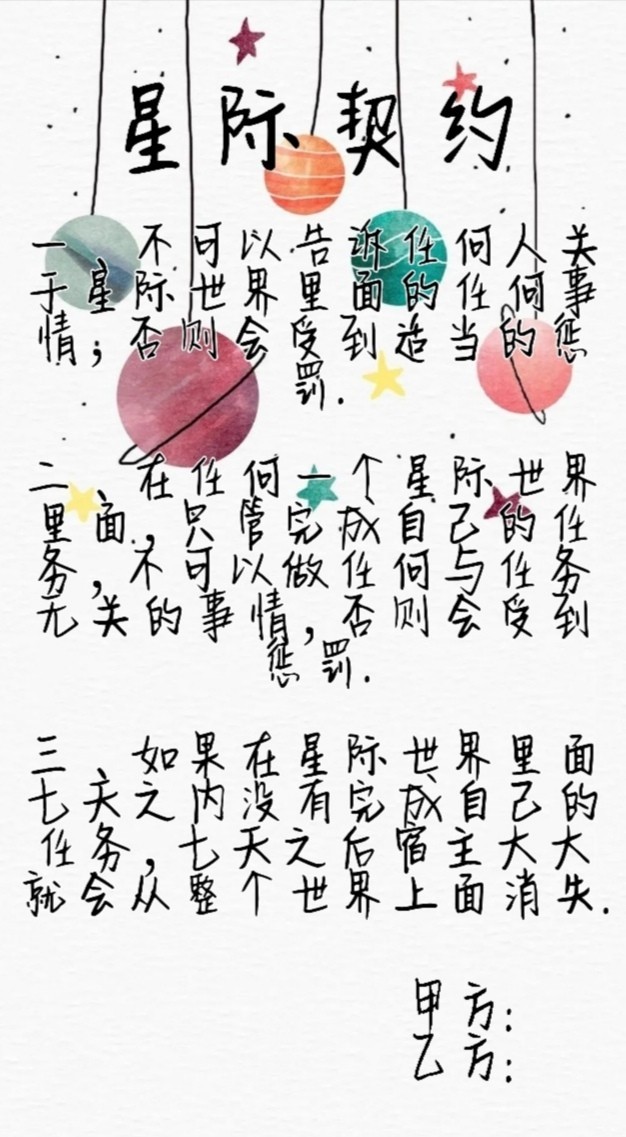 星际契约
一、不可以告诉任何人关
于星际世界里面的任何事
情；否则会受到适当的惩
罚.
二、在任何一个星际世界
里面，只管完成自己的任
务，不可以做任何与任务
无关的事情，否则会受到
惩罚.
三、如果在星际世界里面
七天之内没有完成自己的
任务，七天之后宿主大大
就会从整个世界上面消失.
甲方:
乙方: